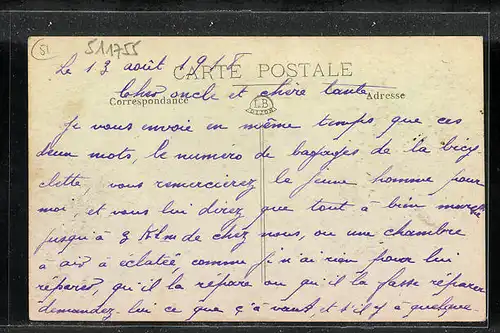 51
511755
Le 13 août 1918
CARTE POSTALE
Cher oncle et chère tante
Correspondance
LB
DIJON
Adresse
Je vous envoie en même temps que ces
deux mots, le numero de bagages de la bicy
clette, vous remercirez le jeune homme pour
moi, et vous lui direz que tout à bien marché
jusqu'à 3 Klm de chez nous, ou une chambre
à air à éclatée, comme je n'ai rien pour lui
réparer, qu'il la répare ou qu'il la fasse réparer
demandez lui ce que ç'à vaut, et s'il y à quelque